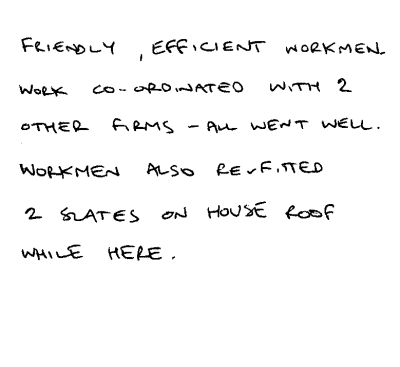 FRIENDLY, EFFICIENT WORKMEN.
WORK CO-ORDINATED WITH 2
OTHER FIRMS - ALL WENT WELL.
WORKMEN ALSO RE-FITTED
2 SLATES ON HOUSE ROOF
WHILE HERE.